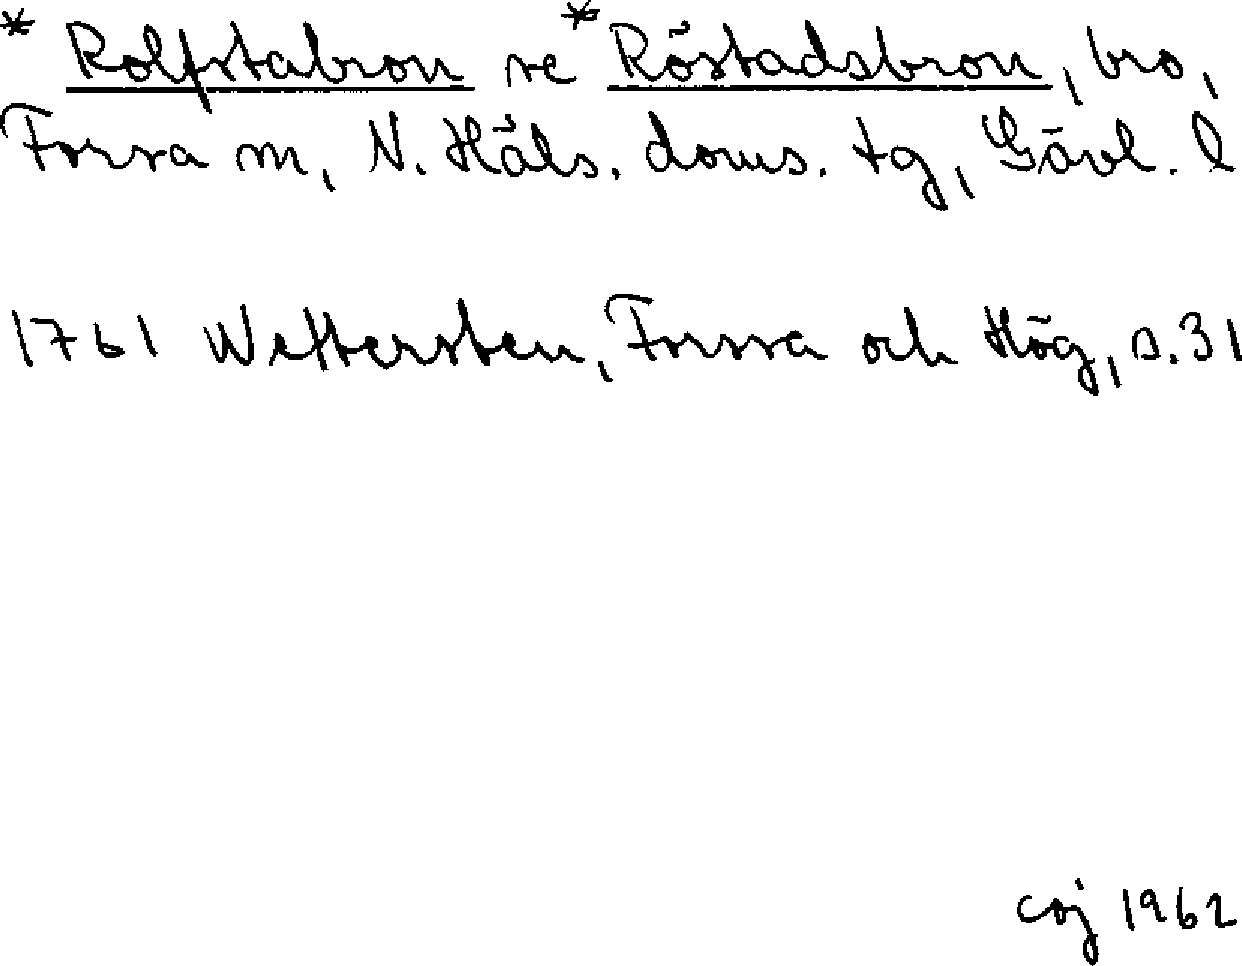 * Rolfstabron se * Röstadsbron, bro,
Forssa sn, N. Häls. doms. tg, Gävl. l
1761 Wettersten, Forssa och Hög, s. 31
coj 1962